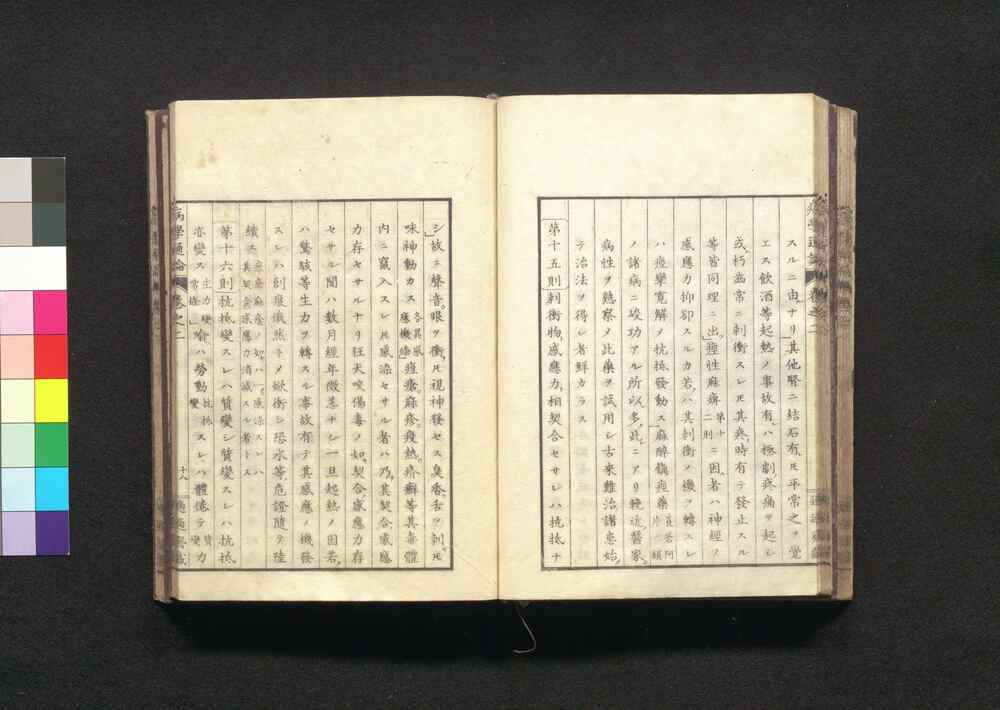 スルニ由ナリ其他腎ニ結石有モ平常之ヲ覺
エス飲酒等起熱ノ事故有ハ極劇疼痛ヲ起シ
或朽齒常ニ刺衝スレモ其痛時有テ發止スル
等皆同理ニ出痙性麻痹 第十二則 ニ因者ハ神經ヲ
感應力抑却スルカ若ハ其刺衝ノ機ヲ轉スレ
ハ痙攣寛解ノ抗抵發動ス麻醉鎮痙藥
ノ諸病ニ竣功アル所以多此ニアリ輓近醫家
病性ヲ熟察メ此藥ヲ試用シ古來難治諸患始
テ治法ヲ得シ者鮮カラス
第十五則刺衝物感應力相契合セサレハ抗抵ナ
シ故ニ聲音眼ヲ衝モ視神發セス臭香舌ヲ刺モ
味神動カス 各異感應機 痘瘡麻疹疫熱疥癬等其毒體
内ニ竄入スレモ感染セサル者ハ乃其契合感應
力存セサルナリ狂犬咬傷毒ノ如契合感應力存
セサル間ハ數月經年微恙ナシ一旦起熱ノ因若
ハ驚駭等生力ヲ轉スル事故有テ其感應ノ機發
スレハ創痕熾然トメ焮衝シ恐水等危證隨テ陸
續ス 其契合感應力消滅スル者トス
第十六則抗抵變スレハ質變シ質變スレハ抗抵
亦變ス 生力變常 喩ハ勞動 抗抵變 スレハ體倦テ 質變 力
病學通論 卷之二
十八